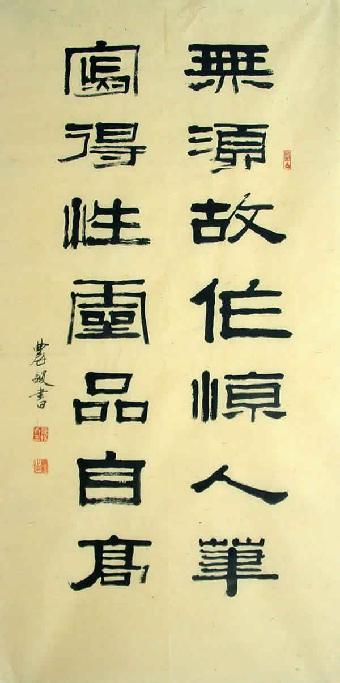 無須故作惊人筆
寫得性靈品自高